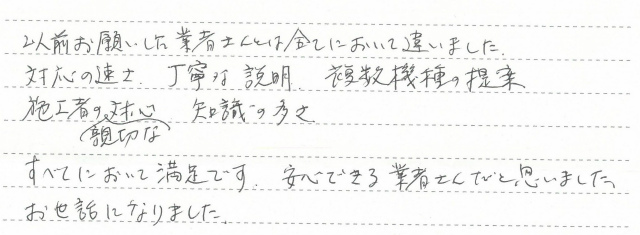 以前お願いした業者さんとは全てにおいて違いました。
対応の速さ 丁寧な説明、複数機種の提案
施工者の親切な対応 知識の多さ
すべてにおいて満足です。安心できる業者さんだと思いました。
お世話になりました。